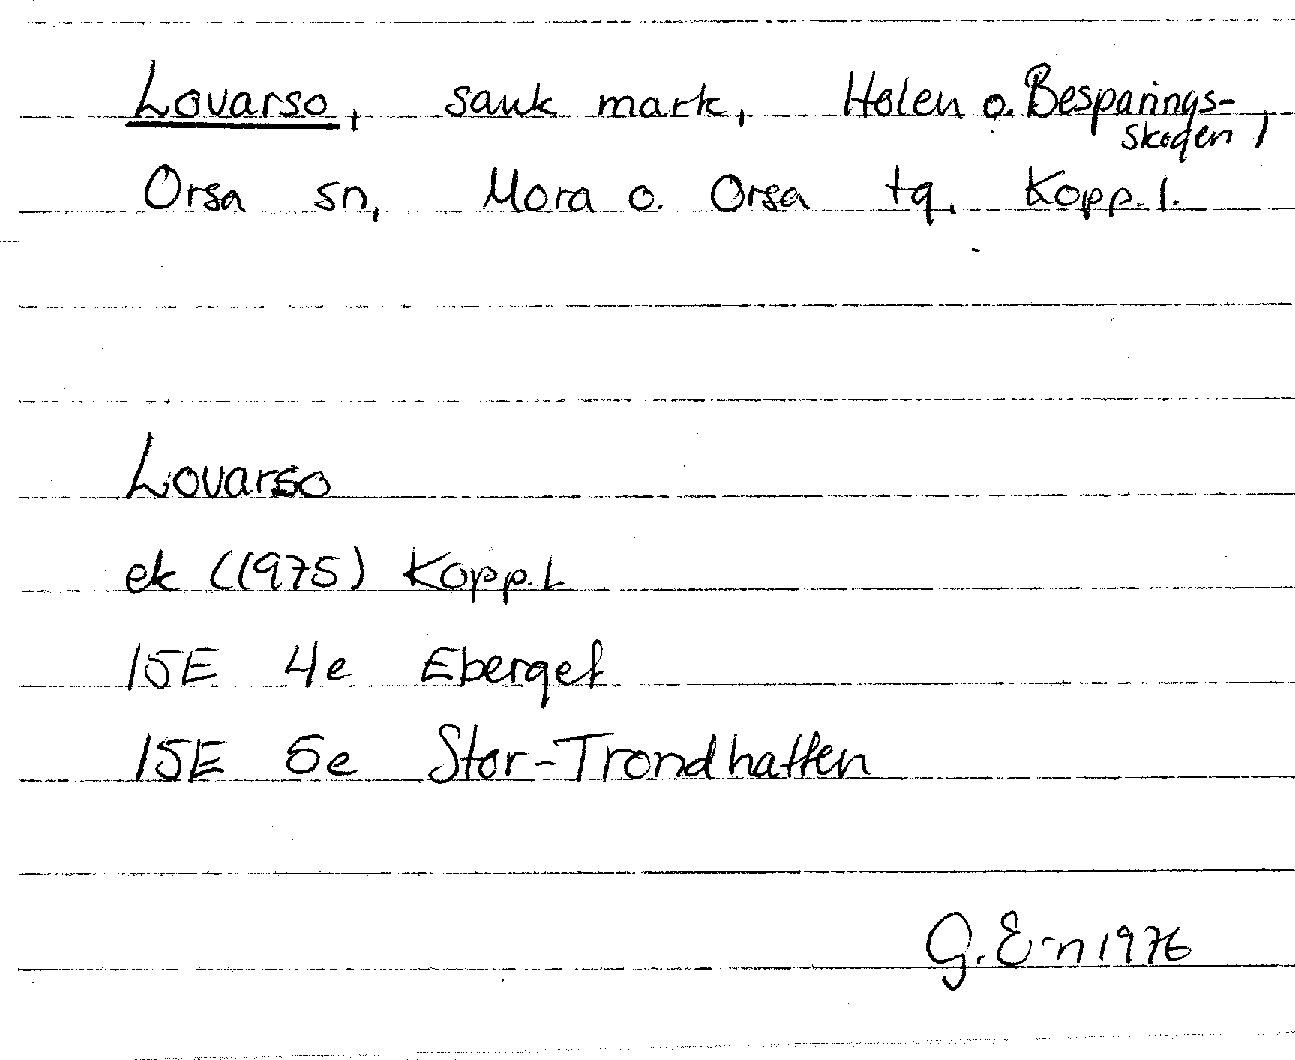 Lovarso, sank mark, Holen o. Besparings-
skogen,
Orsa sn, Mora o. Orsa tg, Kopp. l.
Lovarso
ek (1975) Kopp.L
15E 4e Eberget
15E 5e Stor-Trondhatten
G. E-n 1976